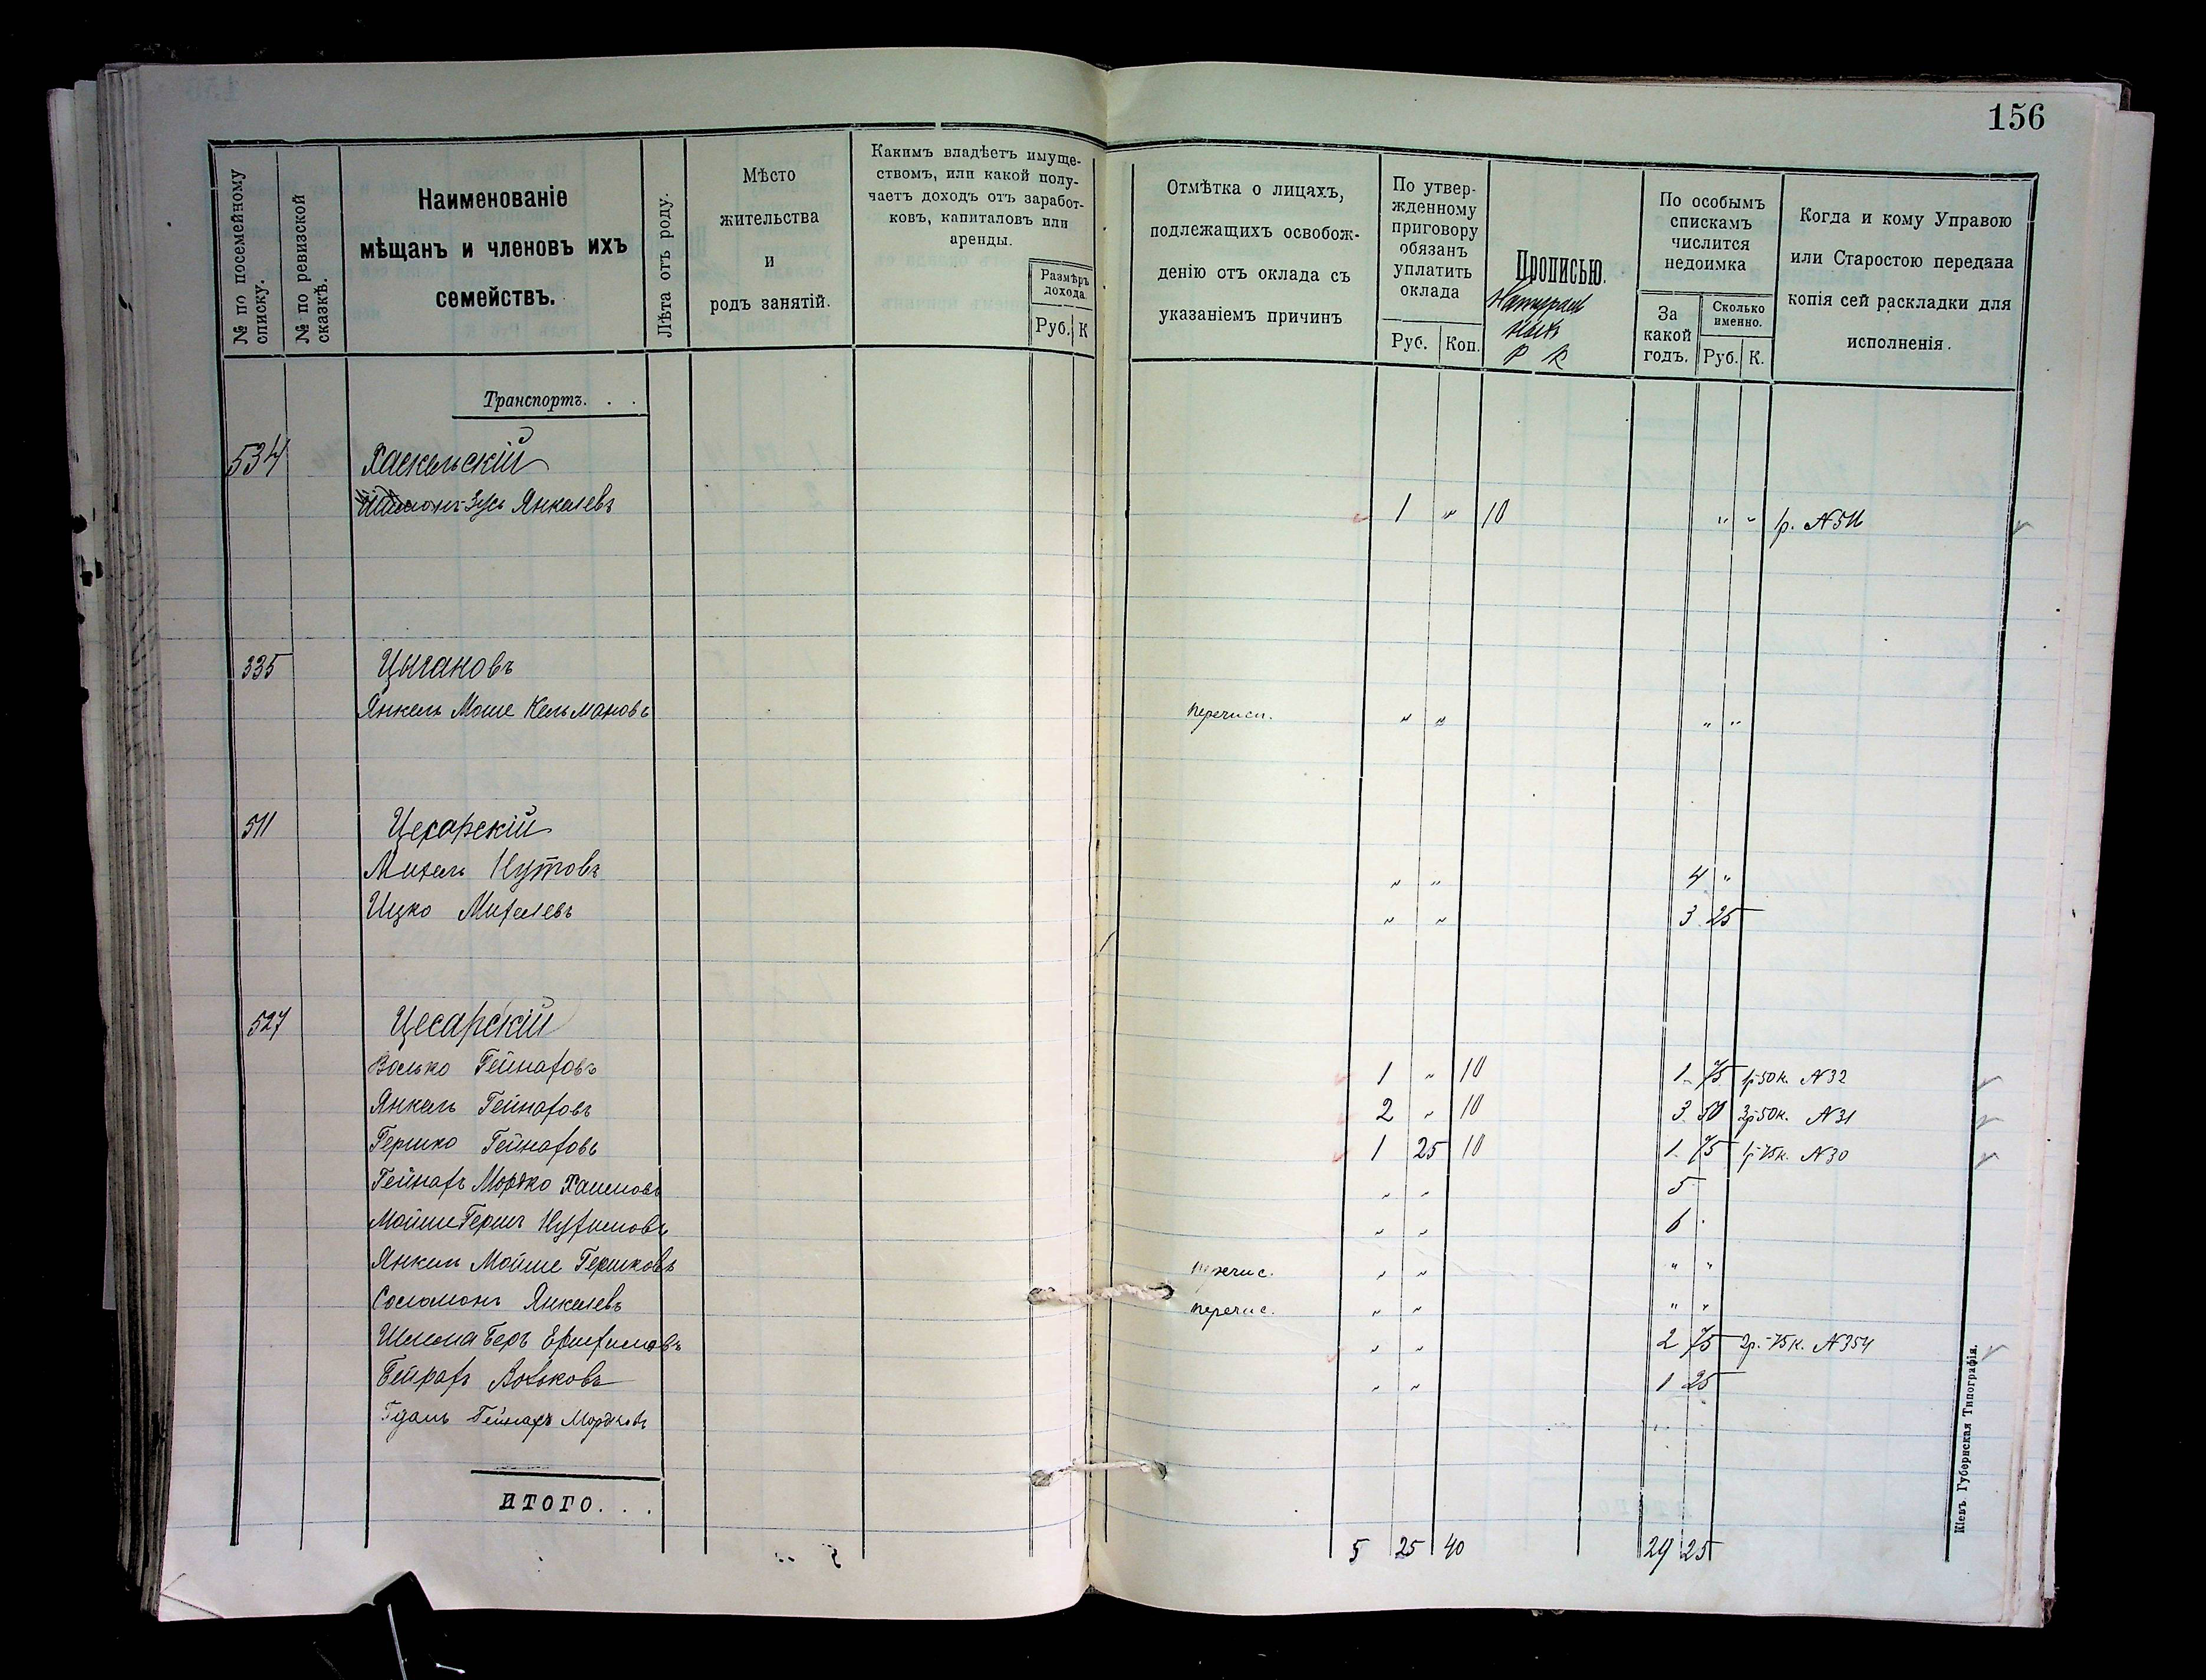 156
№ по посемейному списку.
№ по ревизской сказкѣ.
Наименованіе
мѣщанъ и членовъ ихъ
семействъ.
Лѣта отъ роду.
Мѣсто
жительства
и
родъ занятій.
Какимъ владѣетъ имуще-
ствомъ, или какой полу-
чаетъ доходъ отъ заработ-
ковъ, капиталовъ или
аренды.
Размѣръ
дохода.
Руб. К
Отмѣтка о лицахъ,
подлежащихъ освобож-
денію отъ оклада съ
указаніемъ причинъ
По утвер-
жденному
приговору
обязанъ
уплатить
оклада
Руб. Коп.
Прописью.
Р К
По особымъ
спискамъ
числится
недоимка
За
какой
годъ.
Сколько
именно.
Руб. К.
Когда и кому Управою
или Старостою передана
копія сей раскладки для
исполненія.
Транспортъ. . .
534 Хаскельскій
Зусь Янкелевъ 1 " 10 " " 1р. №
335 Цыгановъ
Янкель Моше Кельмановъ перечисл. " " " "
511 Цесарскій
Михель Нутовъ " " 4 "
Ицко Михелевъ " " 3 25
527 Цесарскій
Волько Гейнаховъ 1 " 10 1 75 1р 50к. №32
Янкель Гейнаховъ 2 " 10 3 50 3р 50к. №31
Гершко Гейнаховъ 1 25 10 1 75 1р 75к. №30
Гейнахъ Мордко Хаимовъ " " 5
Мойше Гершъ Нухимовъ " " 6
Янкель Мойше Гершковъ перечис. " " " "
Соломонъ Янкелевъ перечис. " " " "
Шлема Беръ " " 2 75 2р. 75к. №354
Вольковъ " " 1 25
Гейнахъ Мордковъ
ИТОГО. . .
5 25 40 29 25
Кіевъ Губернская Типографія.